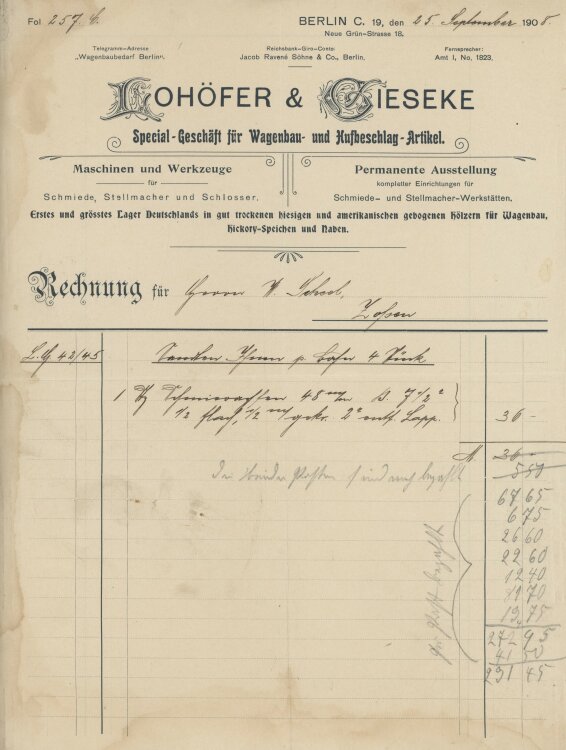 Fol 257. BERLIN C. 19, den 25. September 1908.
Neue Grün-Strasse 18.
Telegramm-Adresse Reichsbank-Giro-Conto: Fernsprecher:
„Wagenbaubedarf Berlin“. Jacob Ravené Söhne & Co., Berlin. Amt I, No. 1823.
LOHÖFER & GIESEKE
Special-Geschäft für Wagenbau- und Hufbeschlag-Artikel.
Maschinen und Werkzeuge Permanente Ausstellung
für kompletter Einrichtungen für
Schmiede, Stellmacher und Schlosser. Schmiede- und Stellmacher-Werkstätten.
Erstes und grösstes Lager Deutschlands in gut trockenen hiesigen und amerikanischen gebogenen Hölzern für Wagenbau,
Hickory-Speichen und Naben.
Rechnung für Herrn
Zossen
L. G 42/45 Sandten Ihnen p. Bahn 4 Stück
1 Schmierachsen 48 m/m 7 1/2
1/2 flach, 1/2 Lapp. 36 -
M. 36 -
5 50
Die beiden Posten sind noch bezahlt
67 65
6 75
26 60
22 60
12 40
11 70
272 95
41 50
231 45